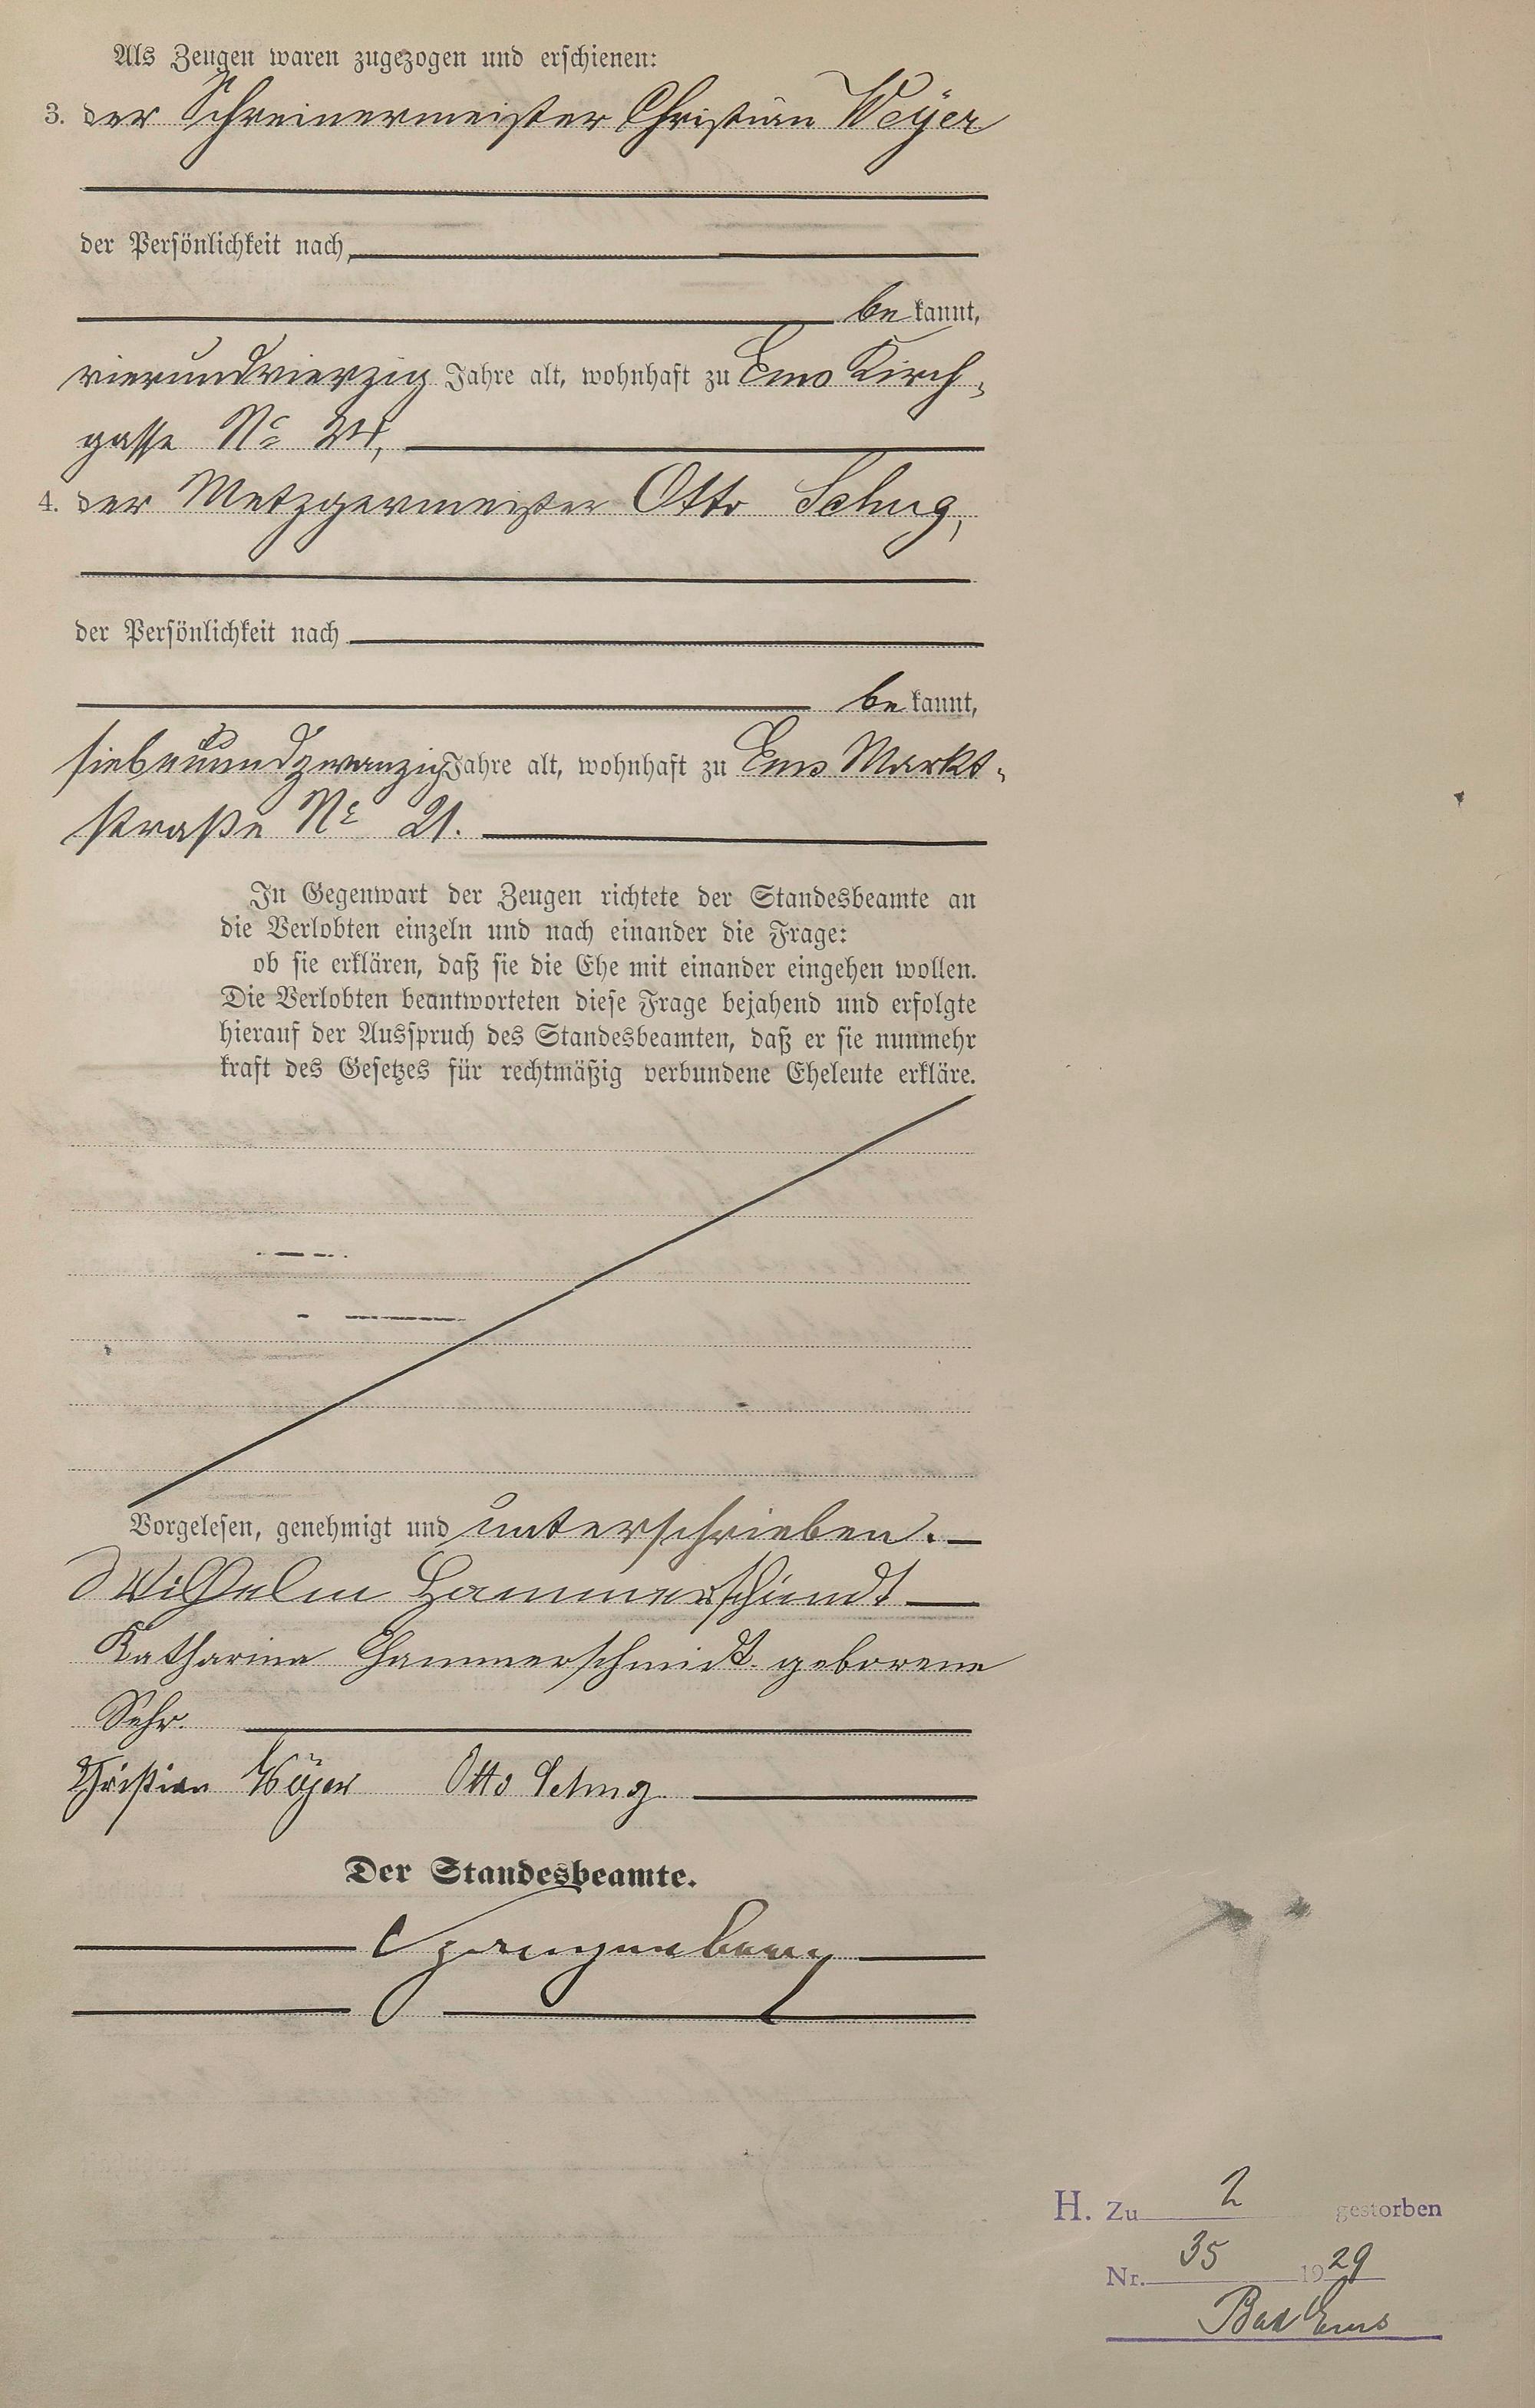 Als Zeugen waren zugezogen und erschienen:
3. der Schreinermeister Christian Weyer
der Persönlichkeit nach,
be kannt,
vierundvierzig Jahre alt, wohnhaft zu Ems Kirch-
gasse No 24,
4. der Metzgermeister Otto Schug,
der Persönlichkeit nach
be kannt,
siebenundzwanzig Jahre alt, wohnhaft zu Ems Markt-
straße No 21.
In Gegenwart der Zeugen richtete der Standesbeamte an
die Verlobten einzeln und nach einander die Frage:
ob sie erklären, daß sie die Ehe mit einander eingehen wollen.
Die Verlobten beantworteten diese Frage bejahend und erfolgte
hierauf der Ausspruch des Standesbeamten, daß er sie nunmehr
kraft des Gesetzes für rechtmäßig verbundene Eheleute erkläre.
Vorgelesen, genehmigt und unterschrieben.
Wilhelm Hammerschmidt
Katharina Hammerschmidt geborene
Sehr.
Christian Weyer Otto Schug
Der Standesbeamte.
H. Zu 2 gestorben
Nr. 35 1929
Bad Ems